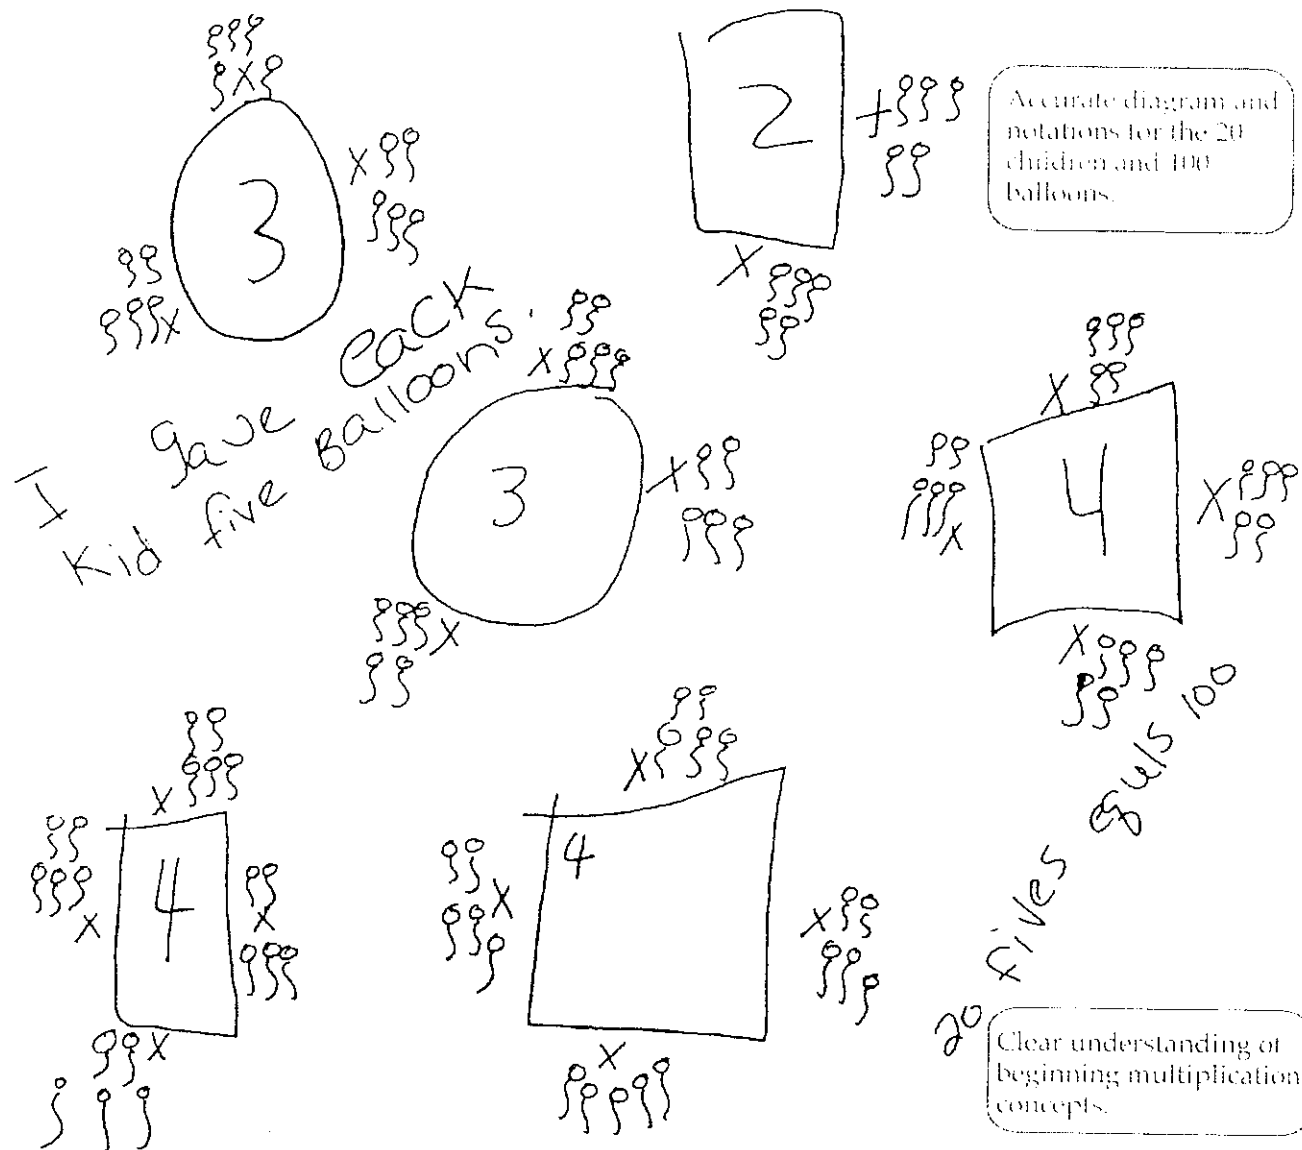 3
2
Accurate diagram and
notations for the 20
children and 100
balloons.
I gave eack
Kid five Balloons.
3
4
4
4
20 fives equls 100
Clear understanding of
beginning multiplication
concepts.